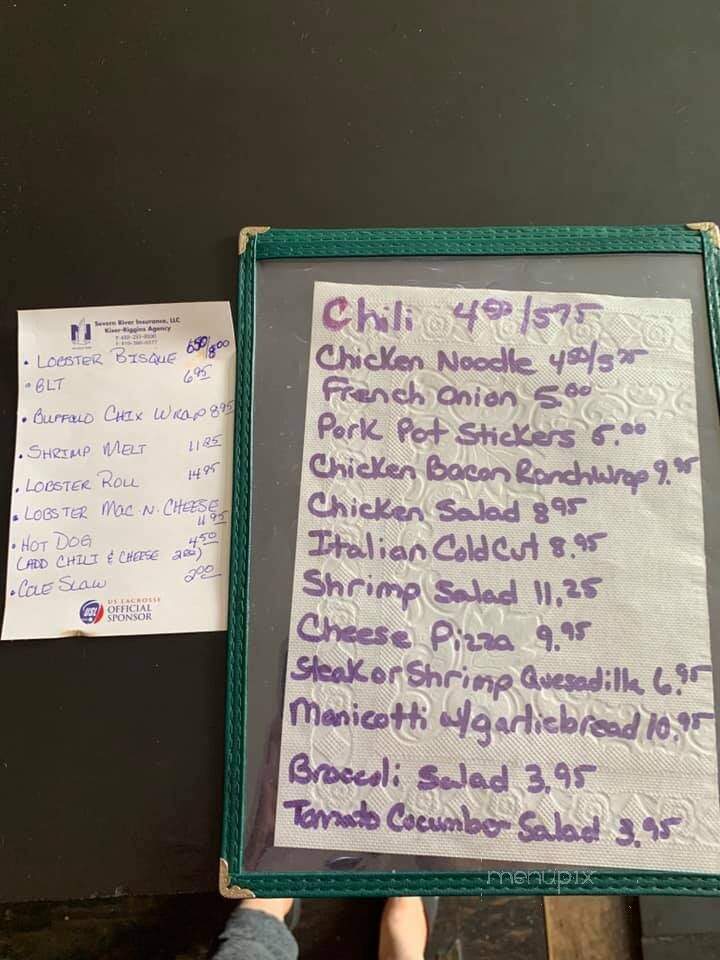 Severn River Insurance, LLC
Kiser-Riggins Agency
• LOBSTER BISQUE 6.50/8.00
• BLT 6.95
• BUFFALO CHIX WRAP 8.95
• SHRIMP MELT 11.25
• LOBSTER ROLL 14.95
• LOBSTER MAC-N-CHEESE
11.95
• HOT DOG 4.50
(ADD CHILI & CHEESE 2.00)
• COLE SLAW 2.00
US LACROSSE
OFFICIAL
SPONSOR
Chili 4.50/5.75
Chicken Noodle 4.50/5.75
French Onion 5.00
Pork Pot Stickers 6.00
Chicken Bacon Ranch Wrap 9.95
Chicken Salad 8.95
Italian Cold Cut 8.95
Shrimp Salad 11.25
Cheese Pizza 9.95
Steak or Shrimp Quesadilla 6.95
Manicotti w/garlic bread 10.95
Broccoli Salad 3.95
Tomato Cucumber Salad 3.95
menupix